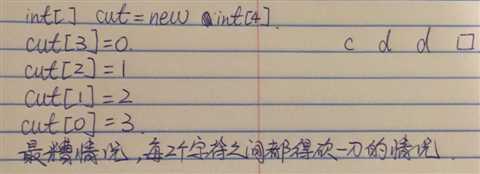 int[] cut = new int[4].
cut[3]=0. c d d □
cut[2]=1
cut[1]=2
cut[0]=3.
最糟情况,每2个字符之间都得砍一刀的情况.